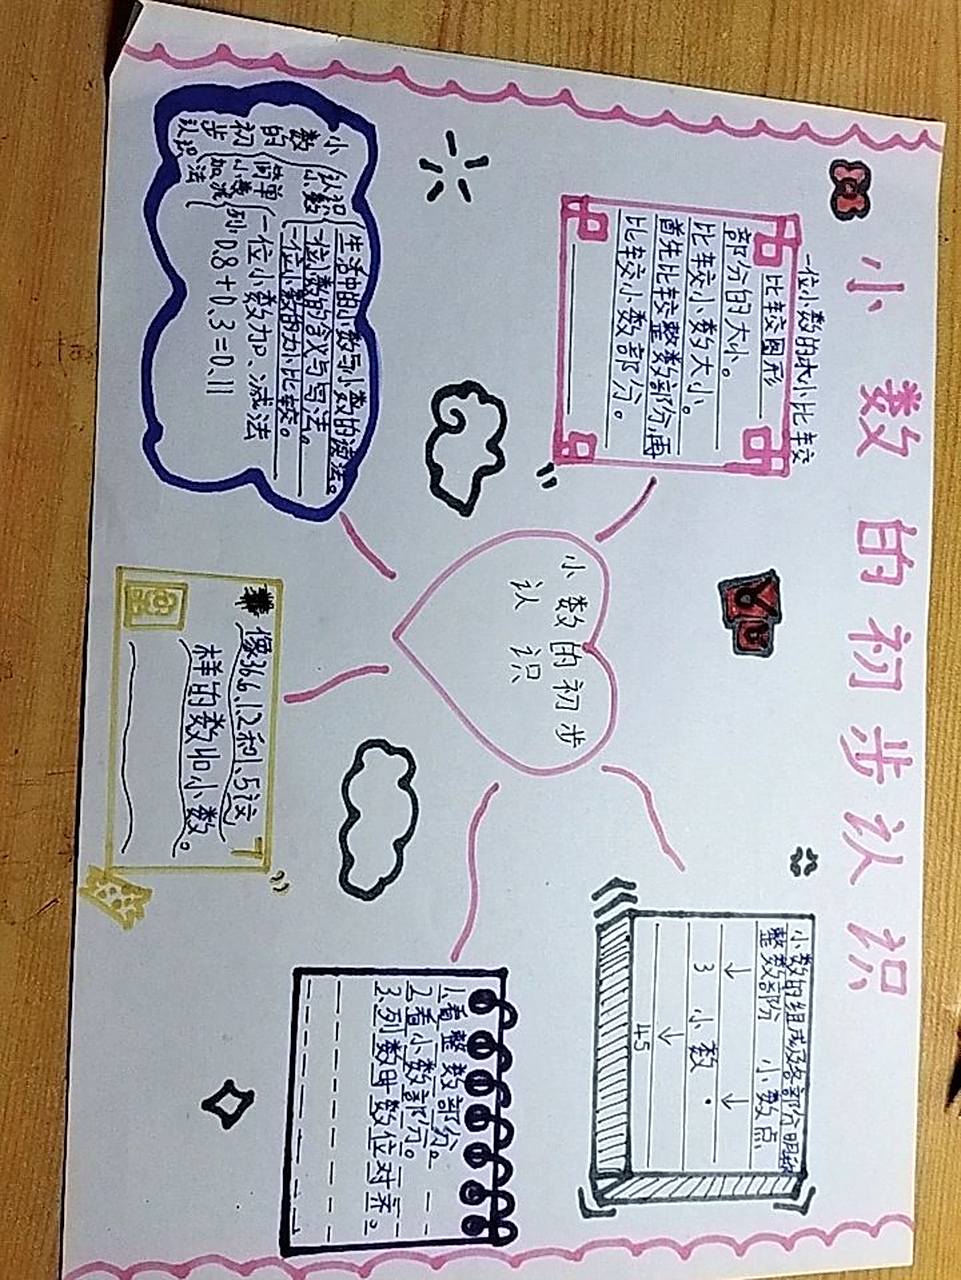 小数的初步认识
一位小数的大小比较
比较图形
部分的大小。
比较小数大小。
首先比较整数部分,再
比较小数部分。
小数的初步认识
认识小数
生活中的小数与小数的读法。
一位小数的含义与写法。
一位小数的大小比较。
简单小数加减法
一位小数加、减法
列:0.8+0.3=0.11
小数的初步
认识
像36.6、1.2和1.5这
样的数叫小数。
小数的组成及各部分明称
整数部份 小数点
↓ ↓
3 小数 .
↓
45
1.看整数部分。
2.看小数部分。
3.列数时数位对齐。